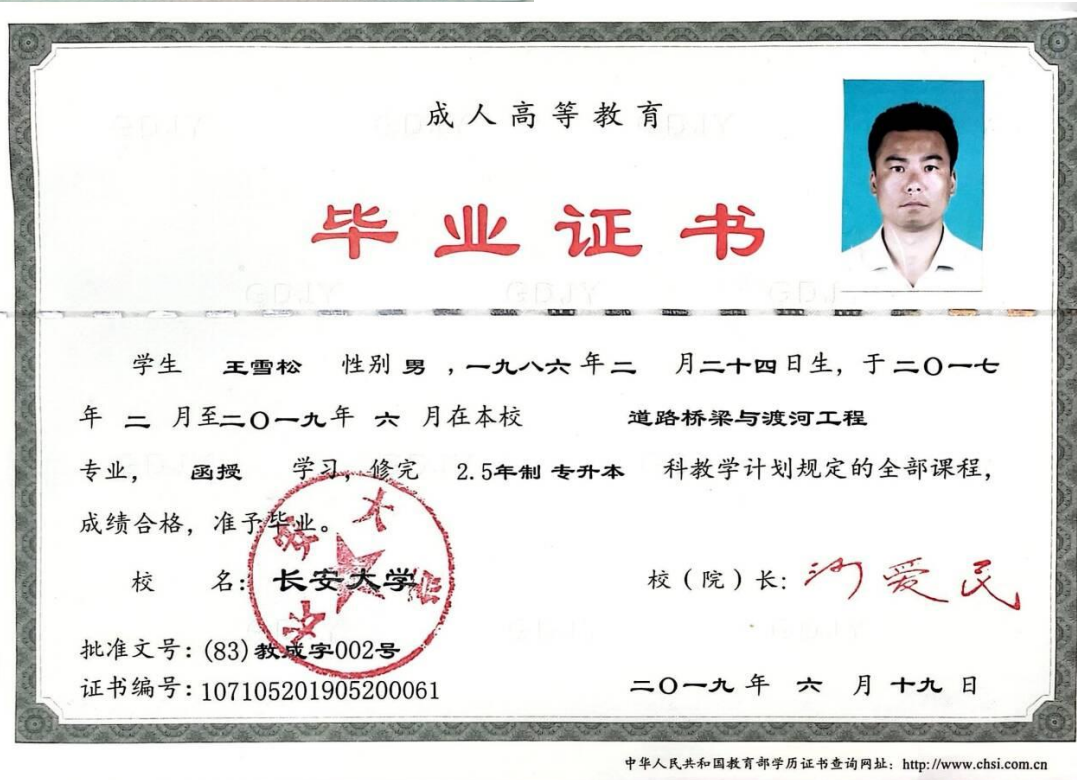 成人高等教育
毕业证书
学生 王雪松 性别 男，一九八六年二 月二十四日生，于二〇一七
年 二 月至二〇一九年 六 月在本校 道路桥梁与渡河工程
专业， 函授 学习，修完 2.5年制 专升本 科教学计划规定的全部课程，
成绩合格，准予毕业。
校 名：长安大学 校（院）长：沙爱民
批准文号：(83)教成字002号
证书编号：107105201905200061 二〇一九 年 六 月 十九 日
中华人民共和国教育部学历证书查询网址：http://www.chsi.com.cn